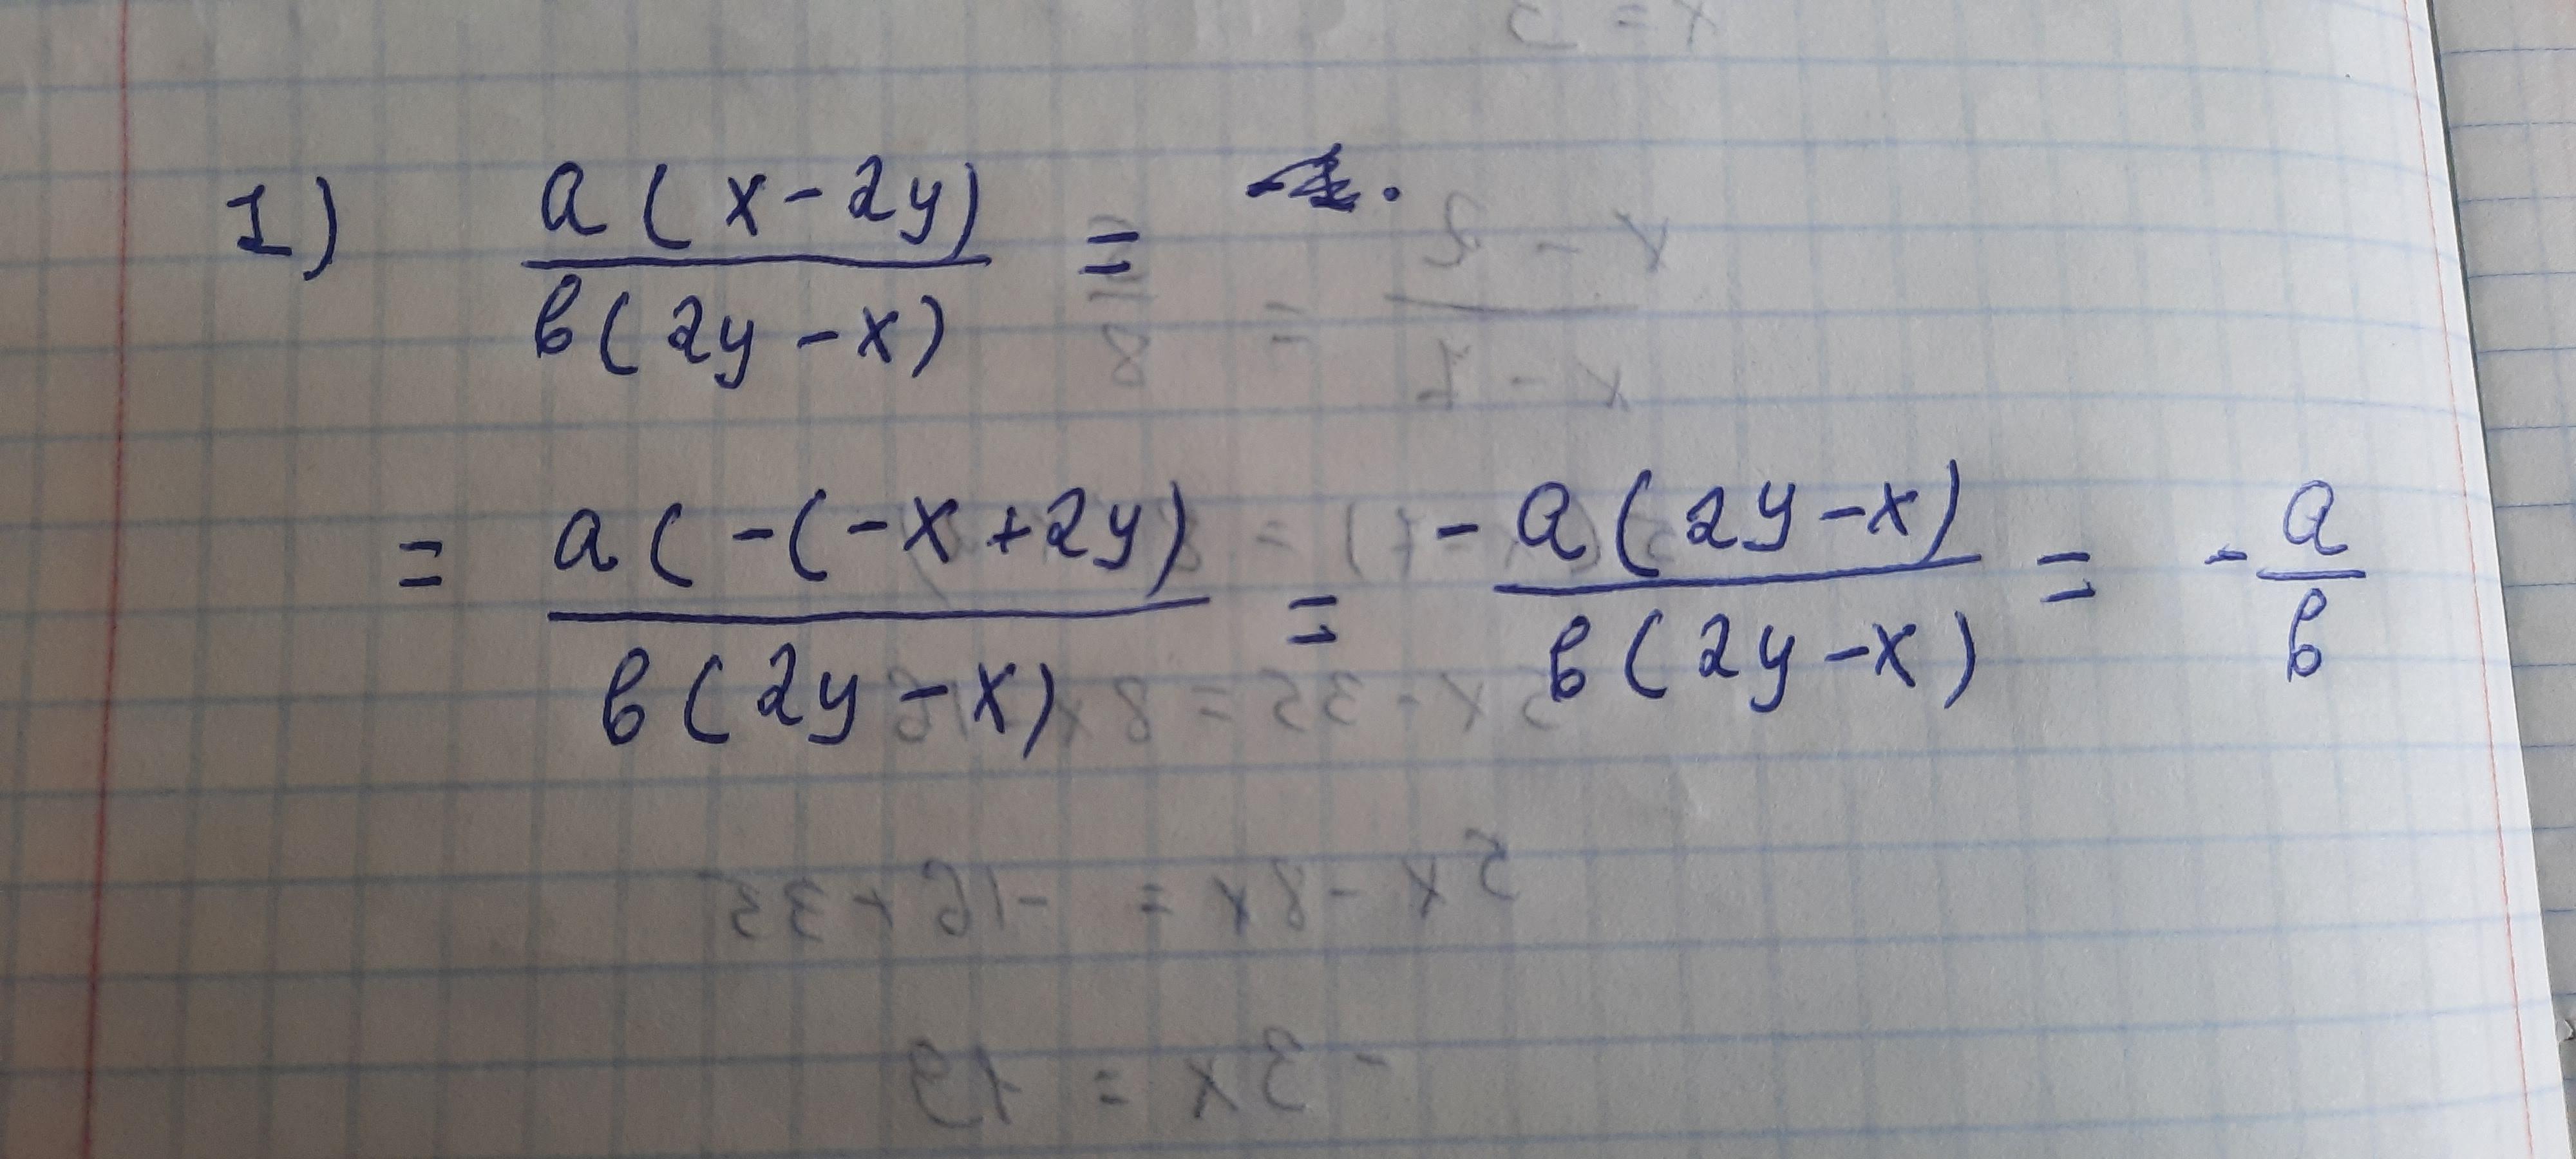 1) a(x-2y)/b(2y-x) =
= a(-(-x+2y)/b(2y-x) = -a(2y-x)/b(2y-x) = -a/b